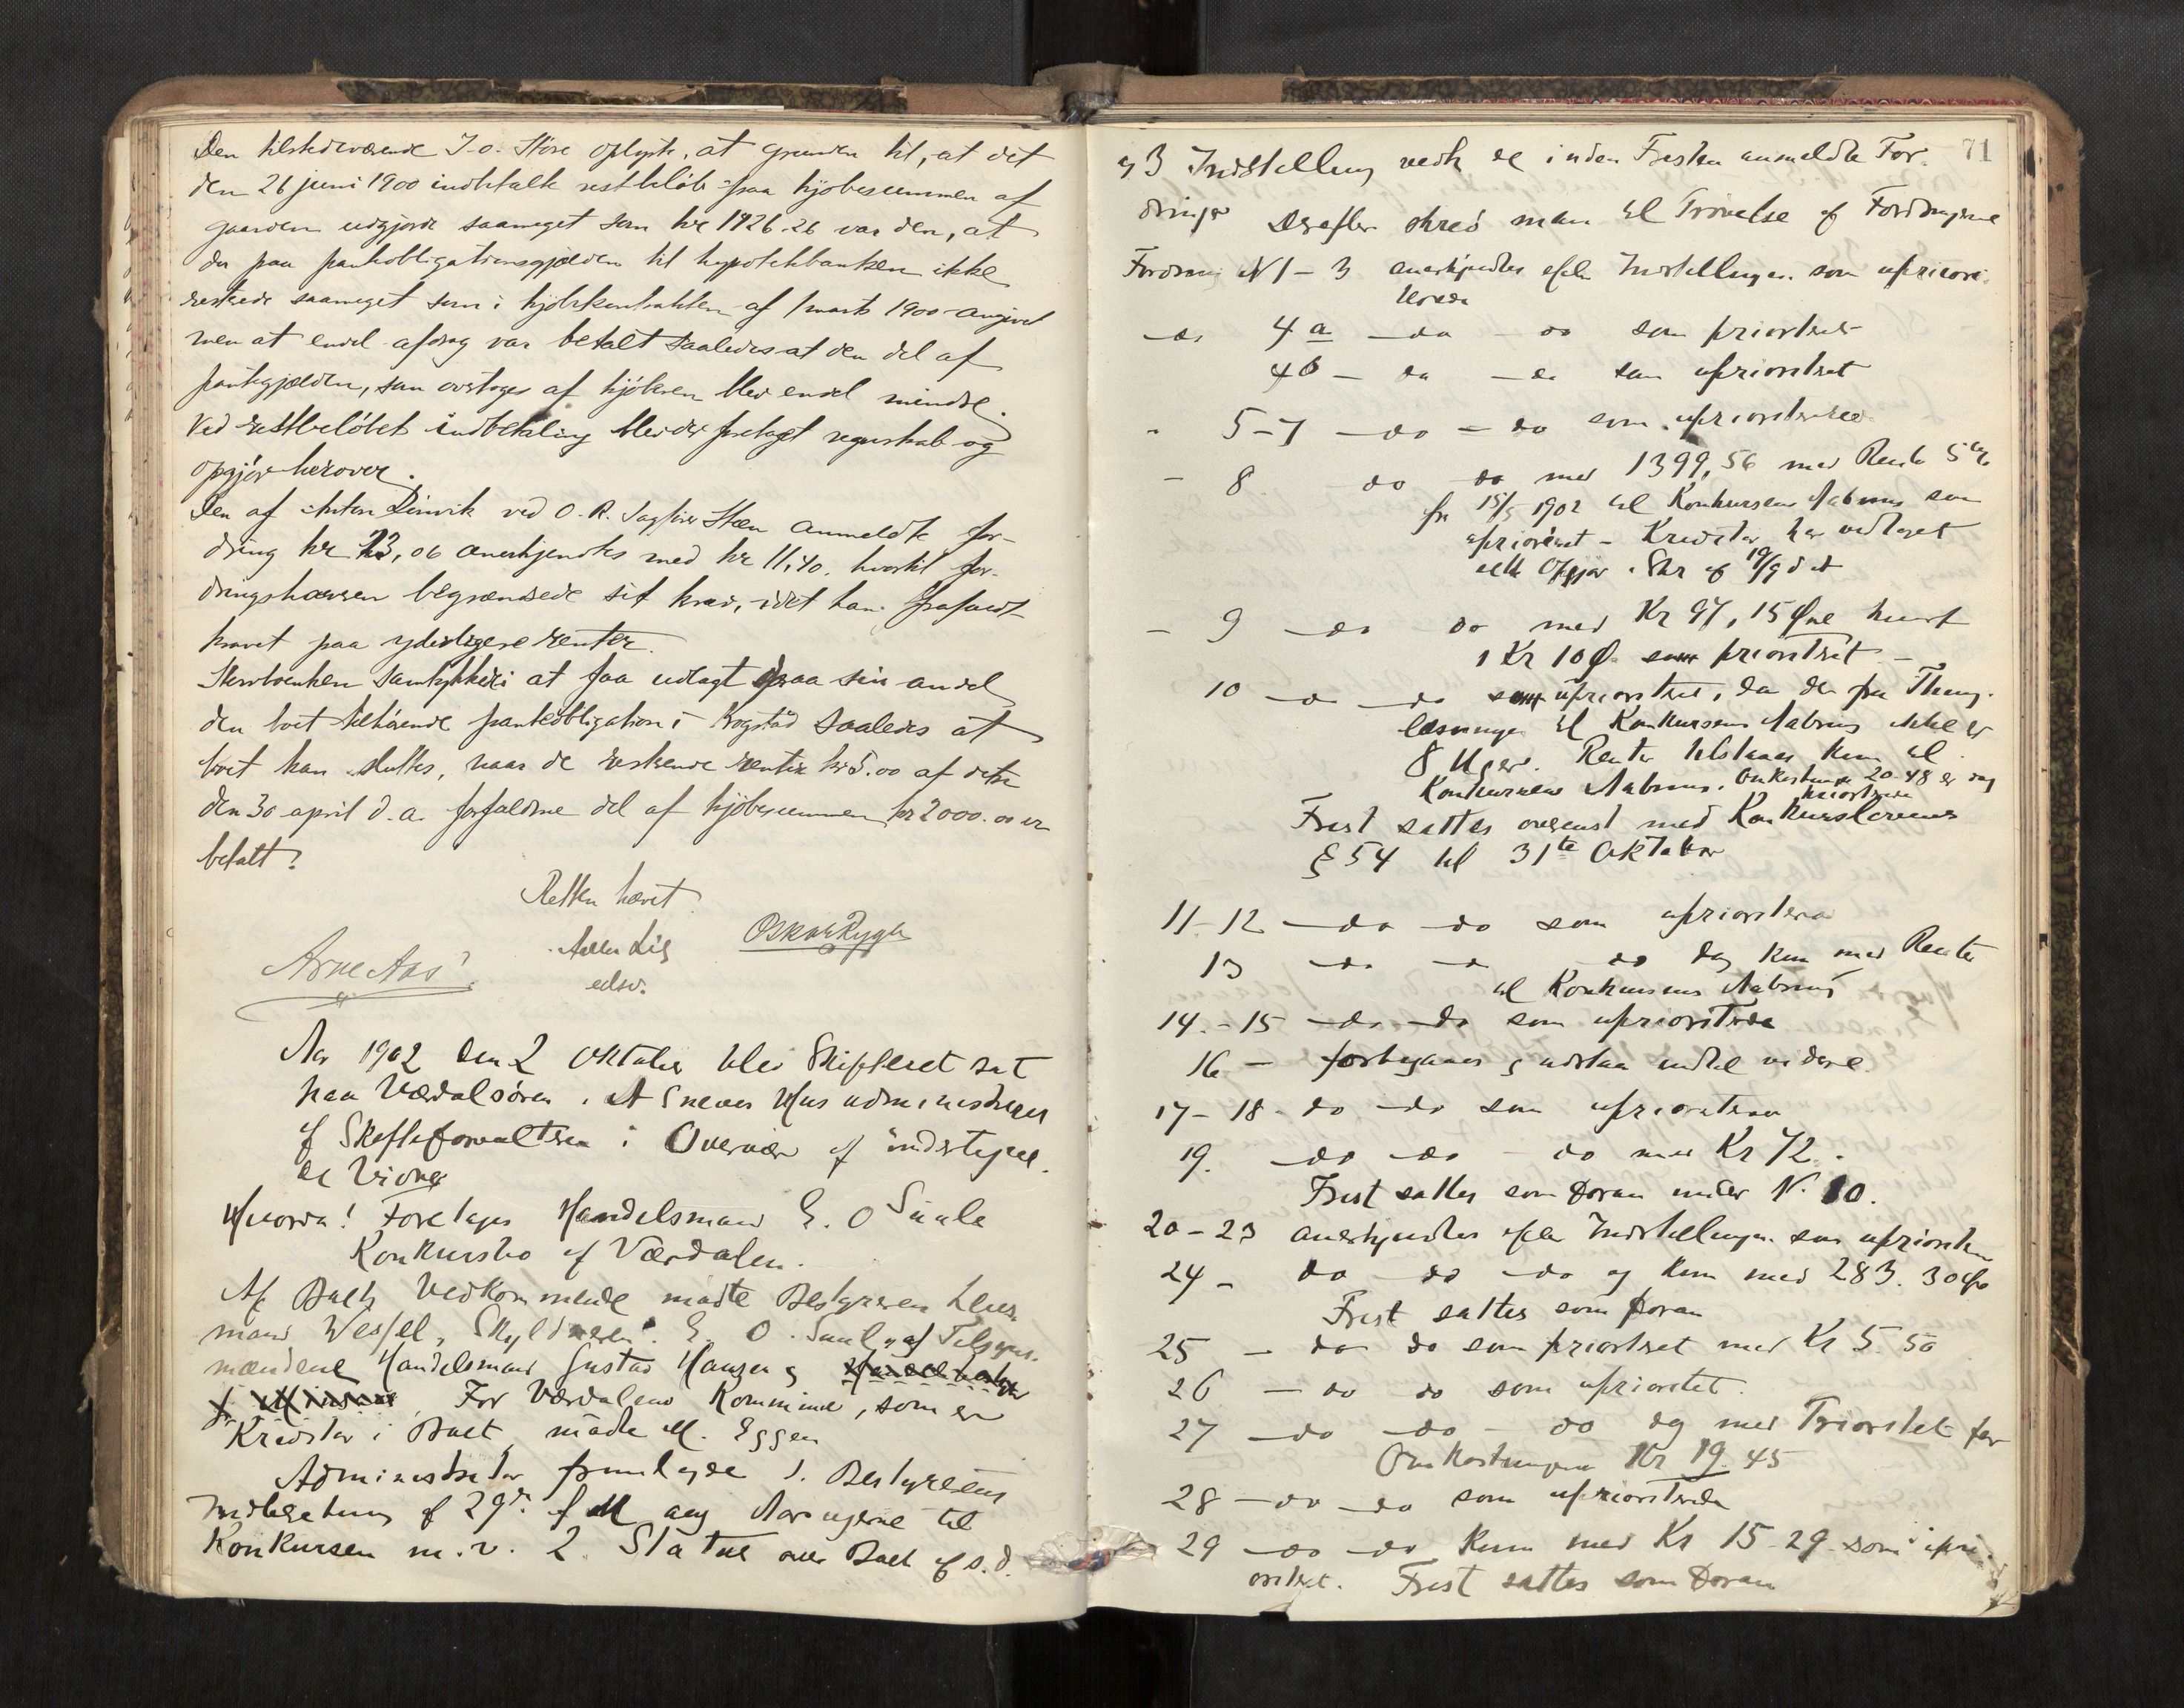 Den tilstedeværende J. O. Støre oplyste, at grunden til, at det
den 26 juni 1900 indbetalte restbeløb paa kjøbesummen af
gaarden udgjorde saameget som kr 1926.26 var den, at
der paa panteobligationsgjælden til hypothekbanken ikke
restrede saameget som i kjøbekontrakten af 1 marts 1900 angivet
men at endel afdrag var betalt saaledes at den del af
pantegjælden, som overtoges af kjøberen blev endel mindre.
Ved restbeløbets indbetaling blev der foretaget regnskab og
opgjør herover.
Den af Anton ved O. R. Sagfører Steen anmeldte for-
dring kr 23,06 anerkjendtes med kr 11,40, hvortil for-
dringshaveren begrænsede sit krav, idet han frafaldt
kravet paa yderligere renter.
samtykkede i at faa udlagt paa sin andel
den boet tilhørende panteobligation i Kogstad saaledes at
boet kan sluttes, naar de resterende renter kr 5.00 af dette
den 30 april d. a. forfaldne del af kjøbesummen kr 2000.00 er
betalt.
Retten hævet
Oskar Rygh
Arne Aas
edsv.
Aar 1902 den 2 Oktober blev Skifteret sat
paa Værdalsøren i A Hus administreret
af Skifteforvalteren i Overvær af undertegne-
de Vidner
Hvorda! Foretages Handelsmand E. O Suuls
Konkursbo af Værdalen.
Af Boets Vedkommende mødte Bestyreren Lens-
mand Wessel, Skyldneren E. O. Suul, af Tilsyns-
mændene Handelsmand Gustav Hansen og
For Værdalens Kommune, som er
Kreditor i Boet mødte M. Eggen
Administrator fremlagde 1. Bestyrerens
Indberetning af 29de f M ang Aarsagerne til
Konkursen m. v. 2. Status over Boet af s. d.
71
og 3 Indstilling vedk de inden Fristen anmeldte For-
dringer Derefter skred man til Prøvelse af Fordringerne
Fordring N 1 - 3 anerkjendtes efter Indstillingen som upriori-
terede
- do 4 a - do - do som prioriteret
4 b - do - do som uprioriteret
- 5 - 7 - do - do som uprioriterede
- 8 do do med 1399,56 med Rente 5 %
fra 15/5 1902 til Konkursens Aabning som
uprioriteret - Kreditor har vedtaget
dette Opgjør i Skr af 19/9 d A
- 9 - do do med Kr 97,15 Øre hvoraf
1 Kr 10 Ø. som prioritet -
10 - do - do som uprioriteret, da der fra Thing-
læsningen til Konkursens Aabning ikke er
8 Uger. Renter tilstaaes kun til
Konkursens Aabning. Omkostninger 20.48 er dog
prioriterede
Frist sattes overenst med Konkurslovens
§ 54 til 31te Oktober
11 - 12 - do - do som uprioriterede
13 - do - do do dog kun med Renter
til Konkursens Aabning
14. - 15 - do - do som uprioriterede
16 - forbigaaes og udstaa indtil videre
17 - 18 - do - do som uprioriterede
19. - do - do - do med Kr 72.
Frist sattes som foran under N. 10.
20 - 23 anerkjendtes efter Indstillingen som uprioriterede
24 - do - do - do og kun med 283. 30 Øre
Frist sattes som foran
25 - do do som prioriteret med Kr 5. 50
26 - do do som uprioriteret.
27 - do - do - do og med Prioritet for
Omkostningerne Kr 19. 45
28 - do - do som uprioriterede
29 - do - do kun med Kr 15 - 29 som upri-
oriteret. Frist sattes som foran